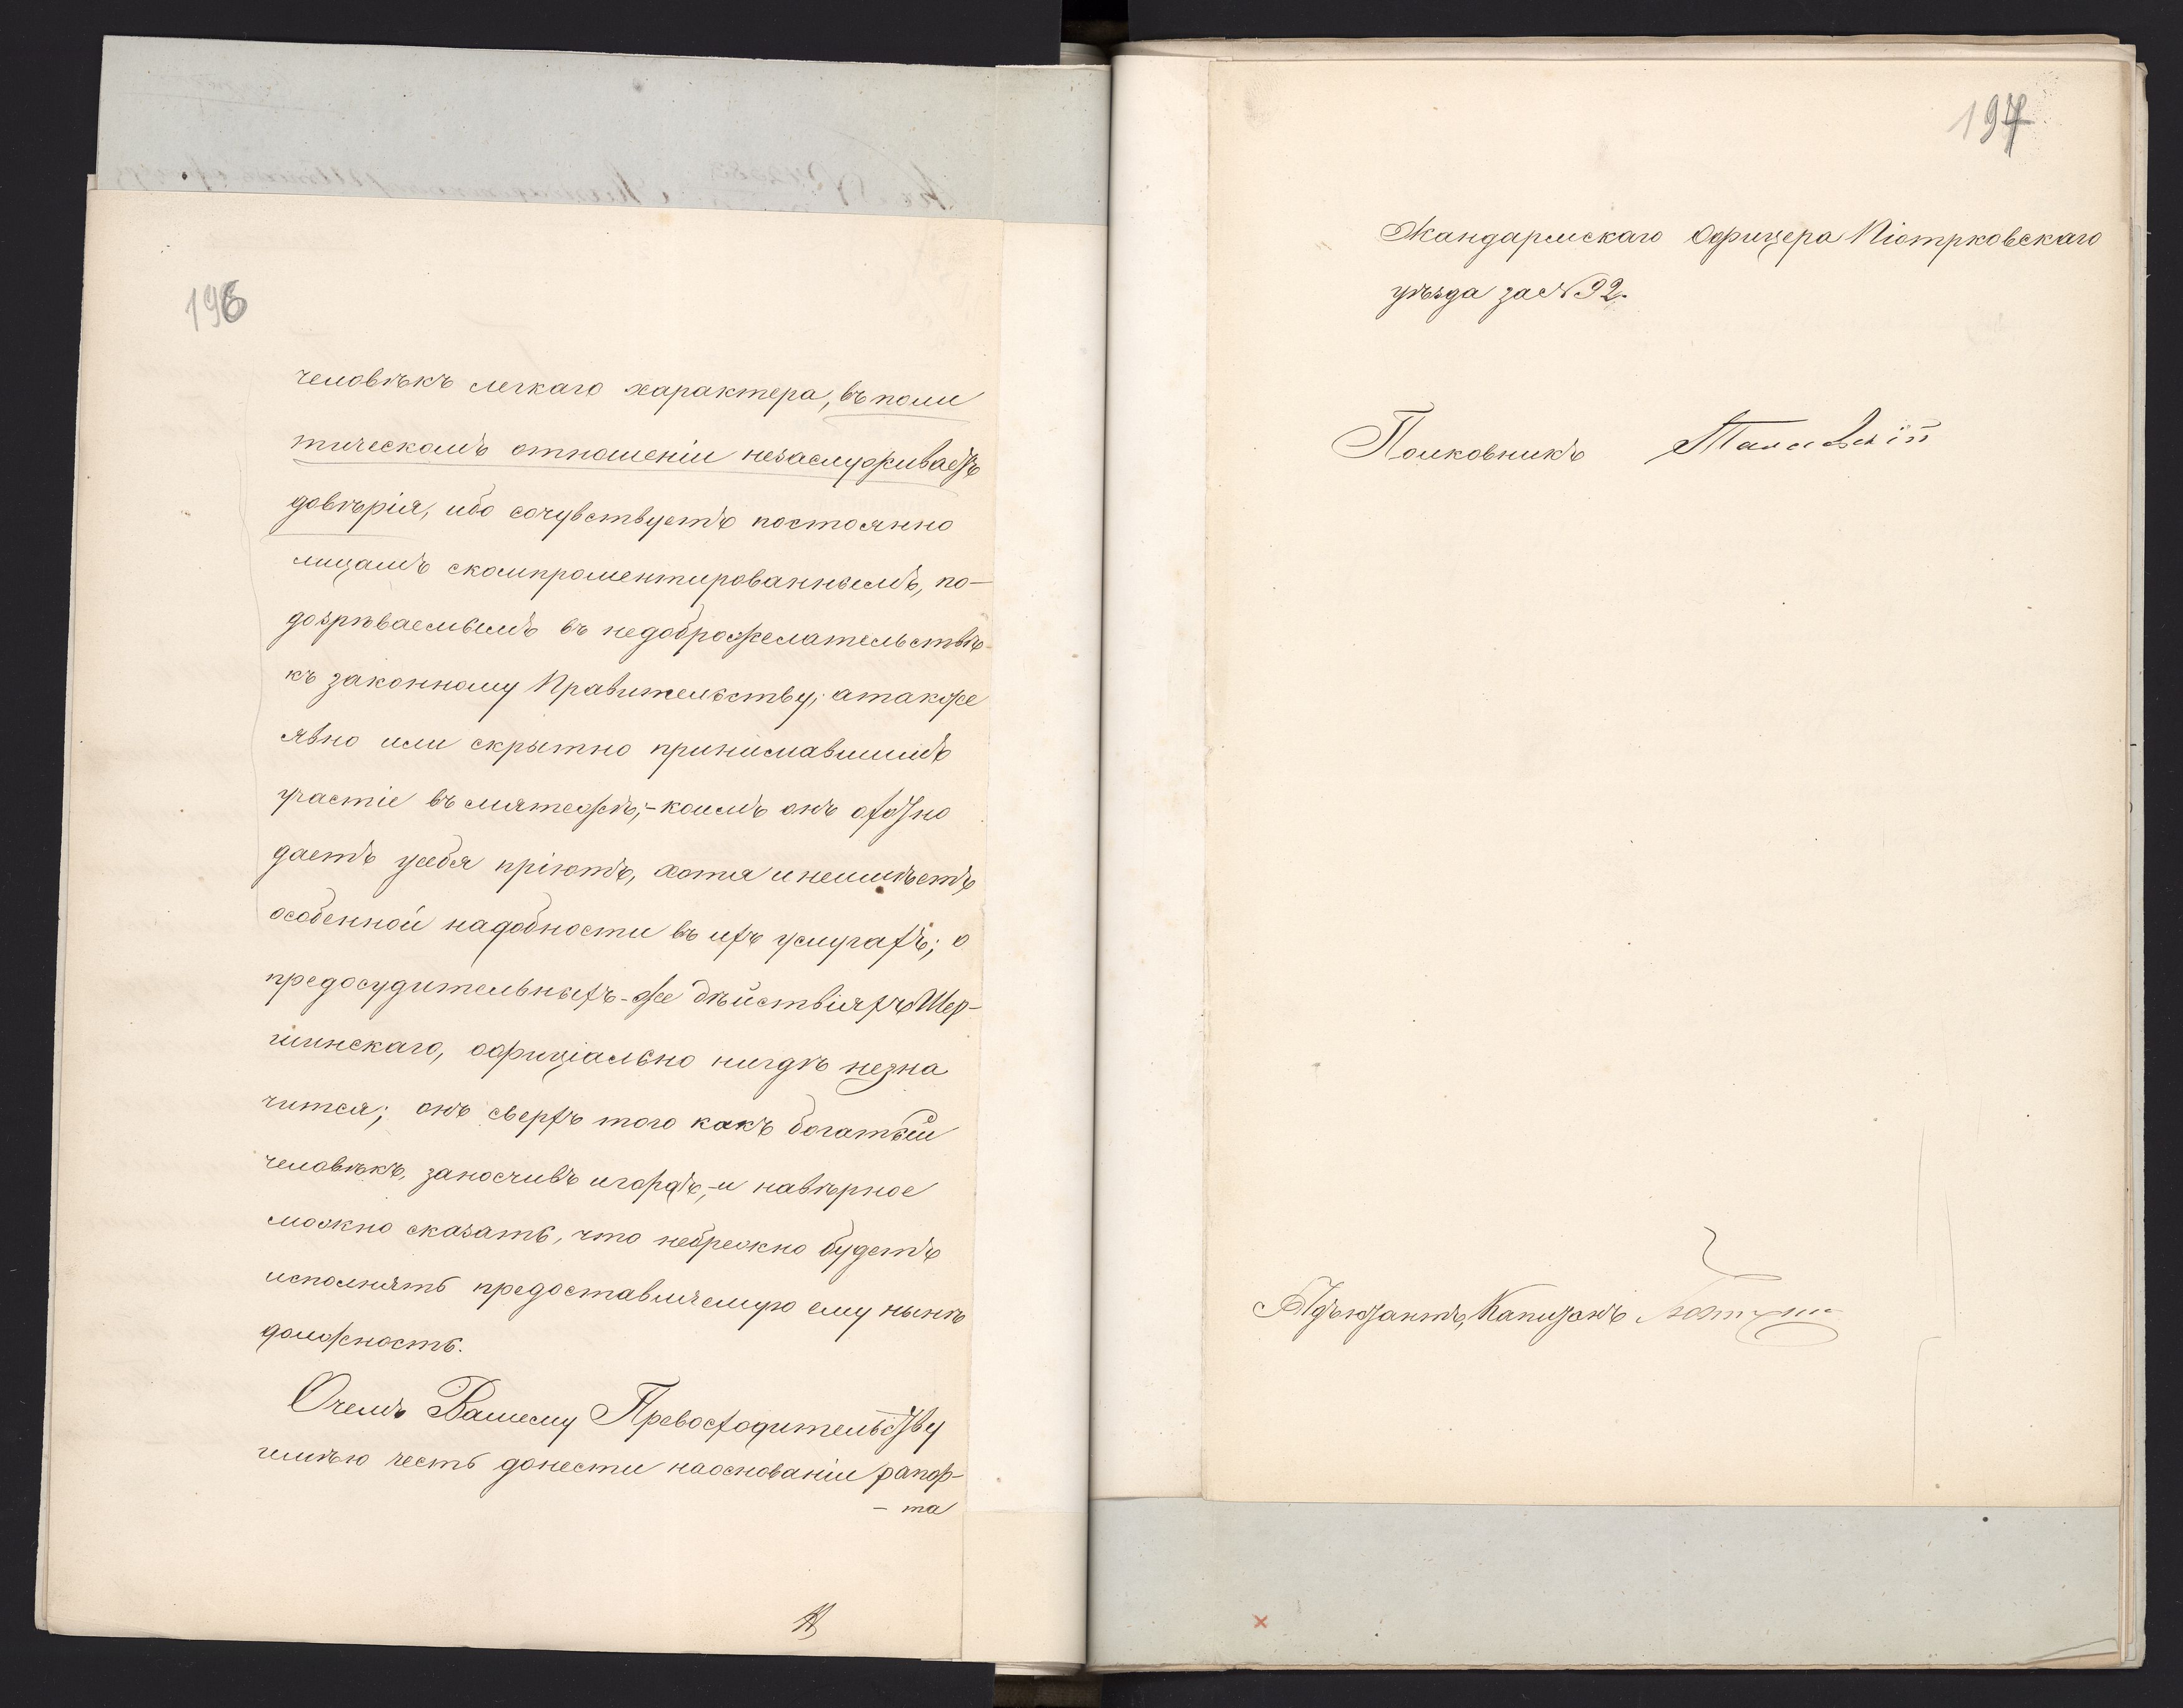 196
человѣкъ легкаго характера, въ поли
тическомъ отношеніи незаслуживаетъ
довѣрія, ибо сочувствуетъ постоянно
лицамъ скомпрометированнымъ, по-
дозрѣваемымъ въ недоброжелательствѣ
къ законному Правительству, атакже
явно или скрытно принимавшимъ
участіе въ мятежѣ,- коимъ онъ охотно
даетъ усебя пріютъ, хотя и неимѣетъ
особенной надобности въ ихъ услугахъ; о
предосудительныхъ-же дѣйствіяхъ Шер-
шинскаго, оффиціально нигдѣ незна
чится; онъ сверхъ того какъ богатый
человѣкъ, заносчивъ игордъ,-и навѣрное
можно сказать, что небрежно будетъ
исполнять предоставляемую ему нынѣ
должность.
Очемъ Вашему Превосходительству
имѣю честь донести наоснованіи рапор-
- та
197
Жандармскаго Офицера Піотрковскаго
уѣзда за № 92.
Полковникъ
Адъютантъ, Капитанъ